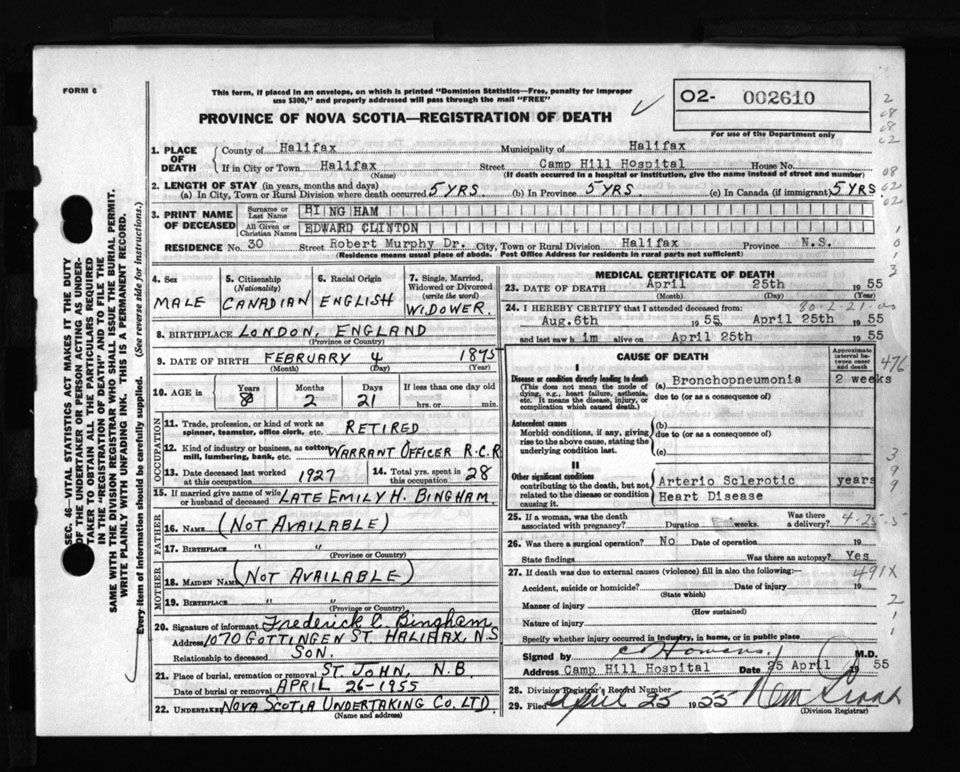 FORM 6
This form, if placed in an envelope, on which is printed "Dominion Statistics—Free, penalty for improper
use $300," and properly addressed will pass through the mail "FREE"
PROVINCE OF NOVA SCOTIA—REGISTRATION OF DEATH
02- 002610
For use of the Department only
1. PLACE OF DEATH
County of Halifax Municipality of Halifax
If in City or Town Halifax Street Camp Hill Hospital House No.
(Name) (If death occurred in a hospital or institution, give the name instead of street and number)
2. LENGTH OF STAY (in years, months and days)
(a) In City, Town or Rural Division where death occurred 5 YRS (b) In Province 5 YRS (c) In Canada (if immigrant) 5 YRS
3. PRINT NAME OF DECEASED
Surname or Last Name BINGHAM
All Given or Christian Names EDWARD CLINTON
RESIDENCE No. 30 Street Robert Murphy Dr. City, Town or Rural Division Halifax Province N.S.
(Residence means usual place of abode. Post Office Address for residents in rural parts not sufficient)
4. Sex MALE
5. Citizenship (Nationality) CANADIAN
6. Racial Origin ENGLISH
7. Single, Married, Widowed or Divorced (write the word) WIDOWER.
8. BIRTHPLACE LONDON, ENGLAND
(Province or Country)
9. DATE OF BIRTH FEBRUARY 4 1875
(Month) (Day) (Year)
10. AGE in Years Months 2 Days 21 If less than one day old
hrs. or min.
OCCUPATION
11. Trade, profession, or kind of work as spinner, teamster, office clerk, etc. RETIRED
12. Kind of industry or business, as cotton mill, lumbering, bank, etc. WARRANT OFFICER R.C.R
13. Date deceased last worked at this occupation 1927
14. Total yrs. spent in this occupation 28
15. If married give name of wife or husband of deceased LATE EMILY H. BINGHAM.
FATHER
16. NAME (NOT AVAILABLE)
17. BIRTHPLACE " "
(Province or Country)
MOTHER
18. MAIDEN NAME (NOT AVAILABLE)
19. BIRTHPLACE " "
(Province or Country)
20. Signature of informant Frederick C. Bingham
Address 1070 GOTTINGEN ST. HALIFAX, N.S
Relationship to deceased SON.
21. Place of burial, cremation or removal ST. JOHN, N.B
Date of burial or removal APRIL 26-1955
22. UNDERTAKER NOVA SCOTIA UNDERTAKING CO. LTD.
(Name and address)
MEDICAL CERTIFICATE OF DEATH
23. DATE OF DEATH April 25th 1955
(Month) (Day) (Year)
24. I HEREBY CERTIFY that I attended deceased from:
Aug.6th 1955 to April 25th 1955
and last saw h im alive on April 25th 1955
CAUSE OF DEATH
Approximate interval between onset and death
I
Disease or condition directly leading to death
(This does not mean the mode of dying, e.g., heart failure, asthenia, etc. It means the disease, injury, or complication which caused death.)
(a) Bronchopneumonia 2 weeks
due to (or as a consequence of)
Antecedent causes
Morbid conditions, if any, giving rise to the above cause, stating the underlying condition last.
(b)
due to (or as a consequence of)
(c)
II
Other significant conditions
contributing to the death, but not related to the disease or condition causing it.
Arterio Sclerotic years
Heart Disease
476
25. If a woman, was the death associated with pregnancy? Duration weeks. Was there a delivery?
26. Was there a surgical operation? No Date of operation 19
State findings Was there an autopsy? Yes
491X
27. If death was due to external causes (violence) fill in also the following:—
Accident, suicide or homicide? Date of injury 19
(State which)
Manner of injury
(How sustained)
Nature of injury
Specify whether injury occurred in industry, in home, or in public place
Signed by M.D.
Address Camp Hill Hospital Date 25 April 1955
28. Division Registrar's Record Number
29. Filed April 25 1955
(Division Registrar)
SEC. 46—VITAL STATISTICS ACT MAKES IT THE DUTY
OF THE UNDERTAKER OR PERSON ACTING AS UNDER-
TAKER TO OBTAIN ALL THE PARTICULARS REQUIRED
IN THE "REGISTRATION OF DEATH" AND TO FILE THE
SAME WITH THE DIVISION REGISTRAR WHO SHALL ISSUE THE BURIAL PERMIT.
WRITE PLAINLY WITH UNFADING INK. THIS IS A PERMANENT RECORD.
Every item of information should be carefully supplied. (See reverse side for instructions.)